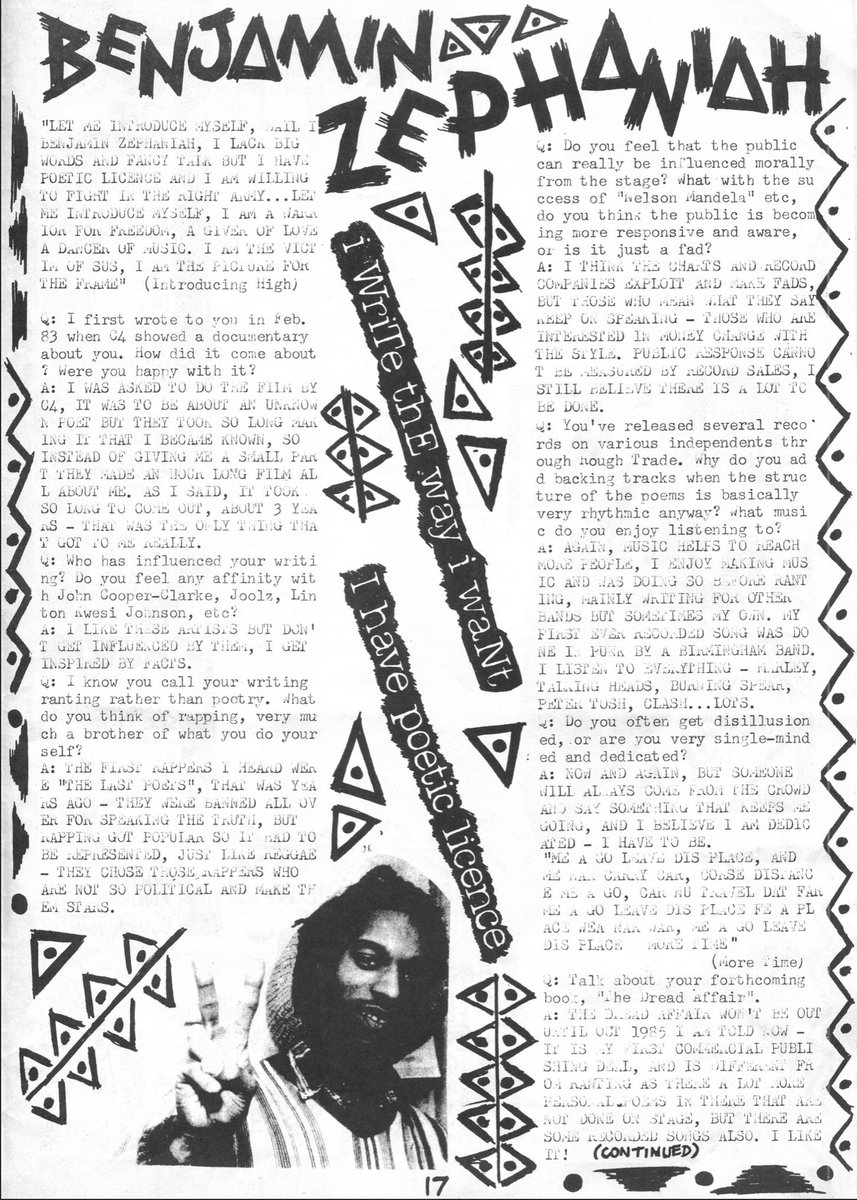 BENJAMIN
ZEPHANIAH
"LET ME INTRODUCE MYSELF, HAIL I
BENJAMIN ZEPHANIAH, I LACK BIG
WORDS AND FANCY TALK BUT I HAVE
POETIC LICENCE AND I AM WILLING
TO FIGHT IN THE RIGHT ARMY...LET
ME INTRODUCE MYSELF, I AM A WARR
IOR FOR FREEDOM, A GIVER OF LOVE
A DANCER OF MUSIC. I AM THE VICT
IM OF SUS, I AM THE PICTURE FOR
THE FRAME" (Introducing High)
Q: I first wrote to you in Feb.
83 when C4 showed a documentary
about you. How did it come about
? Were you happy with it?
A: I WAS ASKED TO DO THE FILM BY
C4, IT WAS TO BE ABOUT AN UNKNOW
N POET BUT THEY TOOK SO LONG MAK
ING IT THAT I BECAME KNOWN, SO
INSTEAD OF GIVING ME A SMALL PAR
T THEY MADE AN HOUR LONG FILM AL
L ABOUT ME. AS I SAID, IT TOOK
SO LONG TO COME OUT, ABOUT 3 YEA
RS - THAT WAS THE ONLY THING THA
T GOT TO ME REALLY.
Q: Who has influenced your writi
ng? Do you feel any affinity wit
h John Cooper-Clarke, Joolz, Lin
ton Kwesi Johnson, etc?
A: I LIKE THESE ARTISTS BUT DON'
T GET INFLUENCED BY THEM, I GET
INSPIRED BY FACTS.
Q: I know you call your writing
ranting rather than poetry. What
do you think of rapping, very mu
ch a brother of what you do your
self?
A: THE FIRST RAPPERS I HEARD WER
E "THE LAST POETS", THAT WAS YEA
RS AGO - THEY WERE BANNED ALL OV
ER FOR SPEAKING THE TRUTH, BUT
RAPPING GOT POPULAR SO IT HAD TO
BE REPRESENTED, JUST LIKE REGGAE
- THEY CHOSE THOSE RAPPERS WHO
ARE NOT SO POLITICAL AND MAKE TH
EM STARS.
i WriTe thE way i waNt
I have poetic licence
Q: Do you feel that the public
can really be influenced morally
from the stage? What with the su
ccess of "Nelson Mandela" etc,
do you think the public is becom
ing more responsive and aware,
or is it just a fad?
A: I THINK THE CHARTS AND RECORD
COMPANIES EXPLOIT AND MAKE FADS,
BUT THOSE WHO MEAN WHAT THEY SAY
KEEP ON SPEAKING - THOSE WHO ARE
INTERESTED IN MONEY CHANGE WITH
THE STYLE. PUBLIC RESPONSE CANNO
T BE MEASURED BY RECORD SALES, I
STILL BELIEVE THERE IS A LOT TO
BE DONE.
Q: You've released several reco
rds on various independents thr
ough Rough Trade. Why do you ad
d backing tracks when the struc
ture of the poems is basically
very rhythmic anyway? What musi
c do you enjoy listening to?
A: AGAIN, MUSIC HELPS TO REACH
MORE PEOPLE, I ENJOY MAKING MUS
IC AND WAS DOING SO BEFORE RANT
ING, MAINLY WRITING FOR OTHER
BANDS BUT SOMETIMES MY OWN. MY
FIRST EVER RECORDED SONG WAS DO
NE IN PUNK BY A BIRMINGHAM BAND.
I LISTEN TO EVERYTHING - MARLEY,
TALKING HEADS, BURNING SPEAR,
PETER TOSH, CLASH...LOTS.
Q: Do you often get disillusion
ed, or are you very single-mind
ed and dedicated?
A: NOW AND AGAIN, BUT SOMEONE
WILL ALWAYS COME FROM THE CROWD
AND SAY SOMETHING THAT KEEPS ME
GOING, AND I BELIEVE I AM DEDIC
ATED - I HAVE TO BE.
"ME A GO LEAVE DIS PLACE, AND
ME NAH CARRY CAR, CORSE DISTANC
E ME A GO, CAR NU TRAVEL DAT FAR
ME A GO LEAVE DIS PLACE FE A PL
ACE WEA NAH WAR, ME A GO LEAVE
DIS PLACE MORE TIME"
(More Time)
Q: Talk about your forthcoming
book, "The Dread Affair".
A: THE DREAD AFFAIR WON'T BE OUT
UNTIL OCT 1985 I AM TOLD NOW -
IT IS MY FIRST COMMERCIAL PUBLI
SHING DEAL, AND IS DIFFERENT FR
OM RANTING AS THERE A LOT MORE
PERSONAL POEMS IN THERE THAT ARE
NOT DONE ON STAGE, BUT THERE ARE
SOME RECORDED SONGS ALSO. I LIKE
IT! (CONTINUED)
17